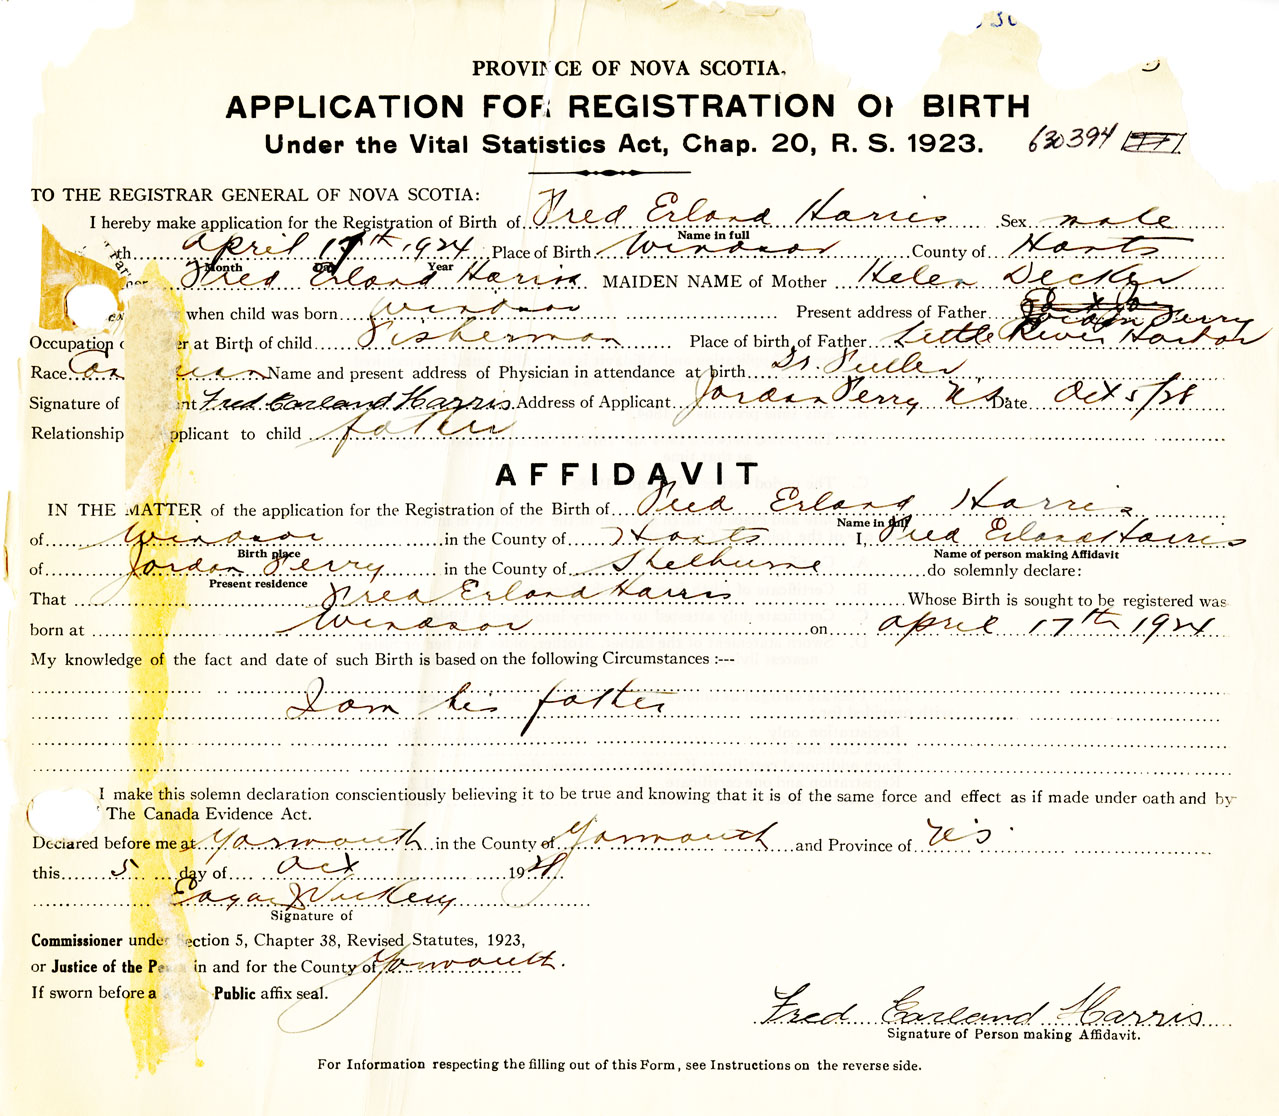 PROVINCE OF NOVA SCOTIA.
APPLICATION FOR REGISTRATION OF BIRTH
Under the Vital Statistics Act, Chap. 20, R. S. 1923. 630394
TO THE REGISTRAR GENERAL OF NOVA SCOTIA:
I hereby make application for the Registration of Birth of Fred Erland Harris Sex male
Name in full
April 17th 1924 Place of Birth Windsor County of Hants
Month Day Year
Fred Erland Harris MAIDEN NAME of Mother Helen Decker
when child was born Windsor Present address of Father Jordan Ferry
Occupation er at Birth of child Fisherman Place of birth of Father Little River Harbor
Race Name and present address of Physician in attendance at birth Dr
Signature of nt Fred Earland Harris Address of Applicant Jordan Ferry N.S. Date Oct 5/28
Relationship pplicant to child father
AFFIDAVIT
IN THE MATTER of the application for the Registration of the Birth of Fred Erland Harris
Name in full
of Windsor in the County of Hants I, Fred Erland Harris
Birth place Name of person making Affidavit
of Jordan Ferry in the County of Shelburne do solemnly declare:
Present residence
That Fred Erland Harris Whose Birth is sought to be registered was
born at Windsor on April 17th 1924
My knowledge of the fact and date of such Birth is based on the following Circumstances :---
I am his father
I make this solemn declaration conscientiously believing it to be true and knowing that it is of the same force and effect as if made under oath and by
The Canada Evidence Act.
Declared before me at Yarmouth in the County of Yarmouth and Province of N.S.
this 5 day of Oct 1928
Edgar Vickery
Signature of
Commissioner under Section 5, Chapter 38, Revised Statutes, 1923,
or Justice of the Pe in and for the County of Yarmouth.
If sworn before a Public affix seal.
Fred Earland Harris
Signature of Person making Affidavit.
For Information respecting the filling out of this Form, see Instructions on the reverse side.